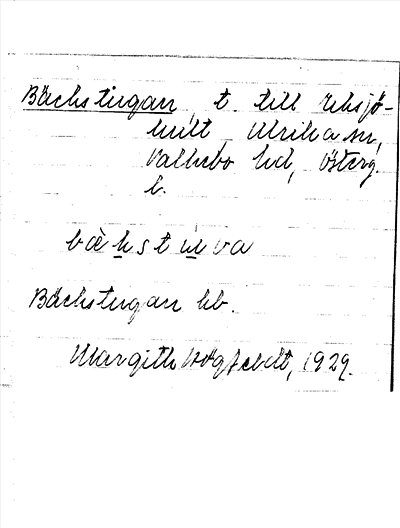 Bäckstugan, t. till Eksjö-
hult, Ulrika sn,
Valkebo hd, Österg.
l.
bäkstuva
Bäckstugan hb.
Margith Högfeldt, 1929.